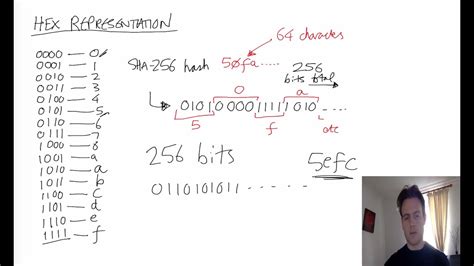 HEX REPRESENTATION
0000 — 0
0001 — 1
0010 — 2
0011 — 3
0100 — 4
0101 — 5
0110 — 6
0111 — 7
1000 — 8
1001 — 9
1010 — a
1011 — b
1100 — c
1101 — d
1110 — e
1111 — f
64 characters
SHA-256 hash 50fa.....
256
bits total
0 a
0101 0000 1111 1010 ....
5 f etc
256 bits
5efc
0110101011 - - - - - -